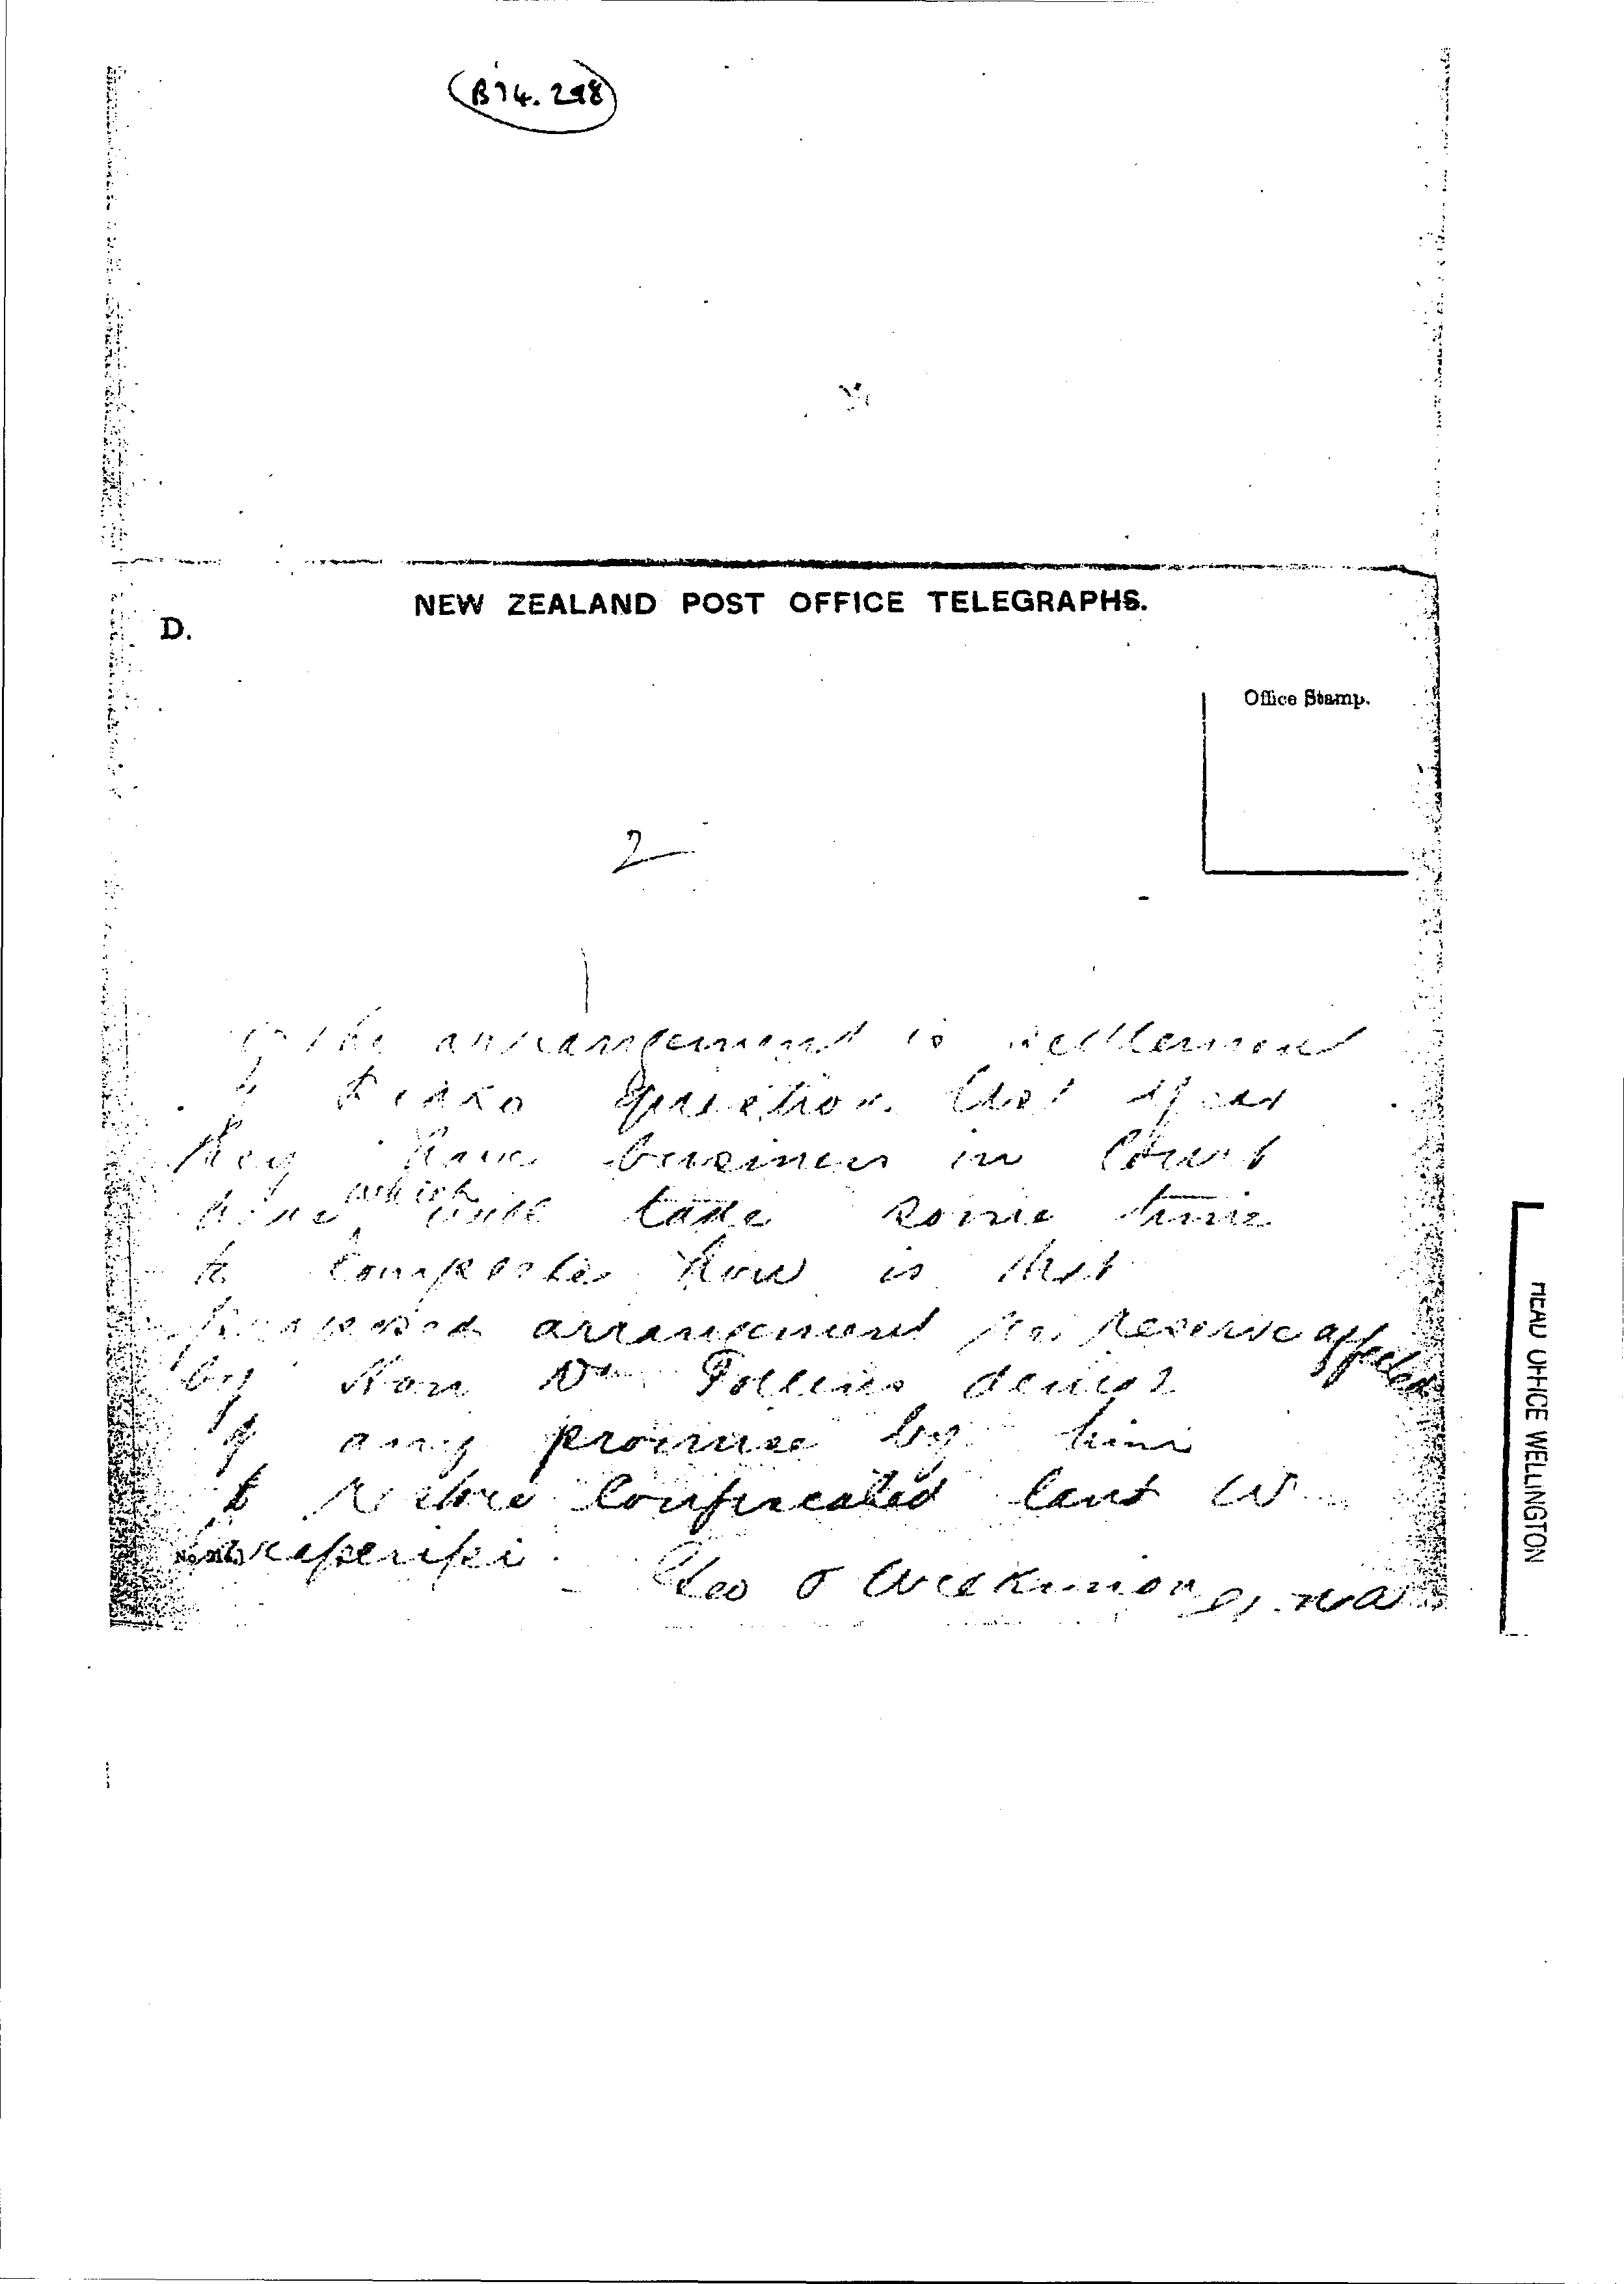 B74.298
NEW ZEALAND POST OFFICE TELEGRAPHS.
D.
Office Stamp.
2
the arrangement is settlement
question that
they have business in Court
here which will take some time
to complete how is that
proposed arrangement for reserve affected
by Hon Dr Pollens denial
of any promise by him
to retire confiscated land
Geo
HEAD OFFICE WELLINGTON